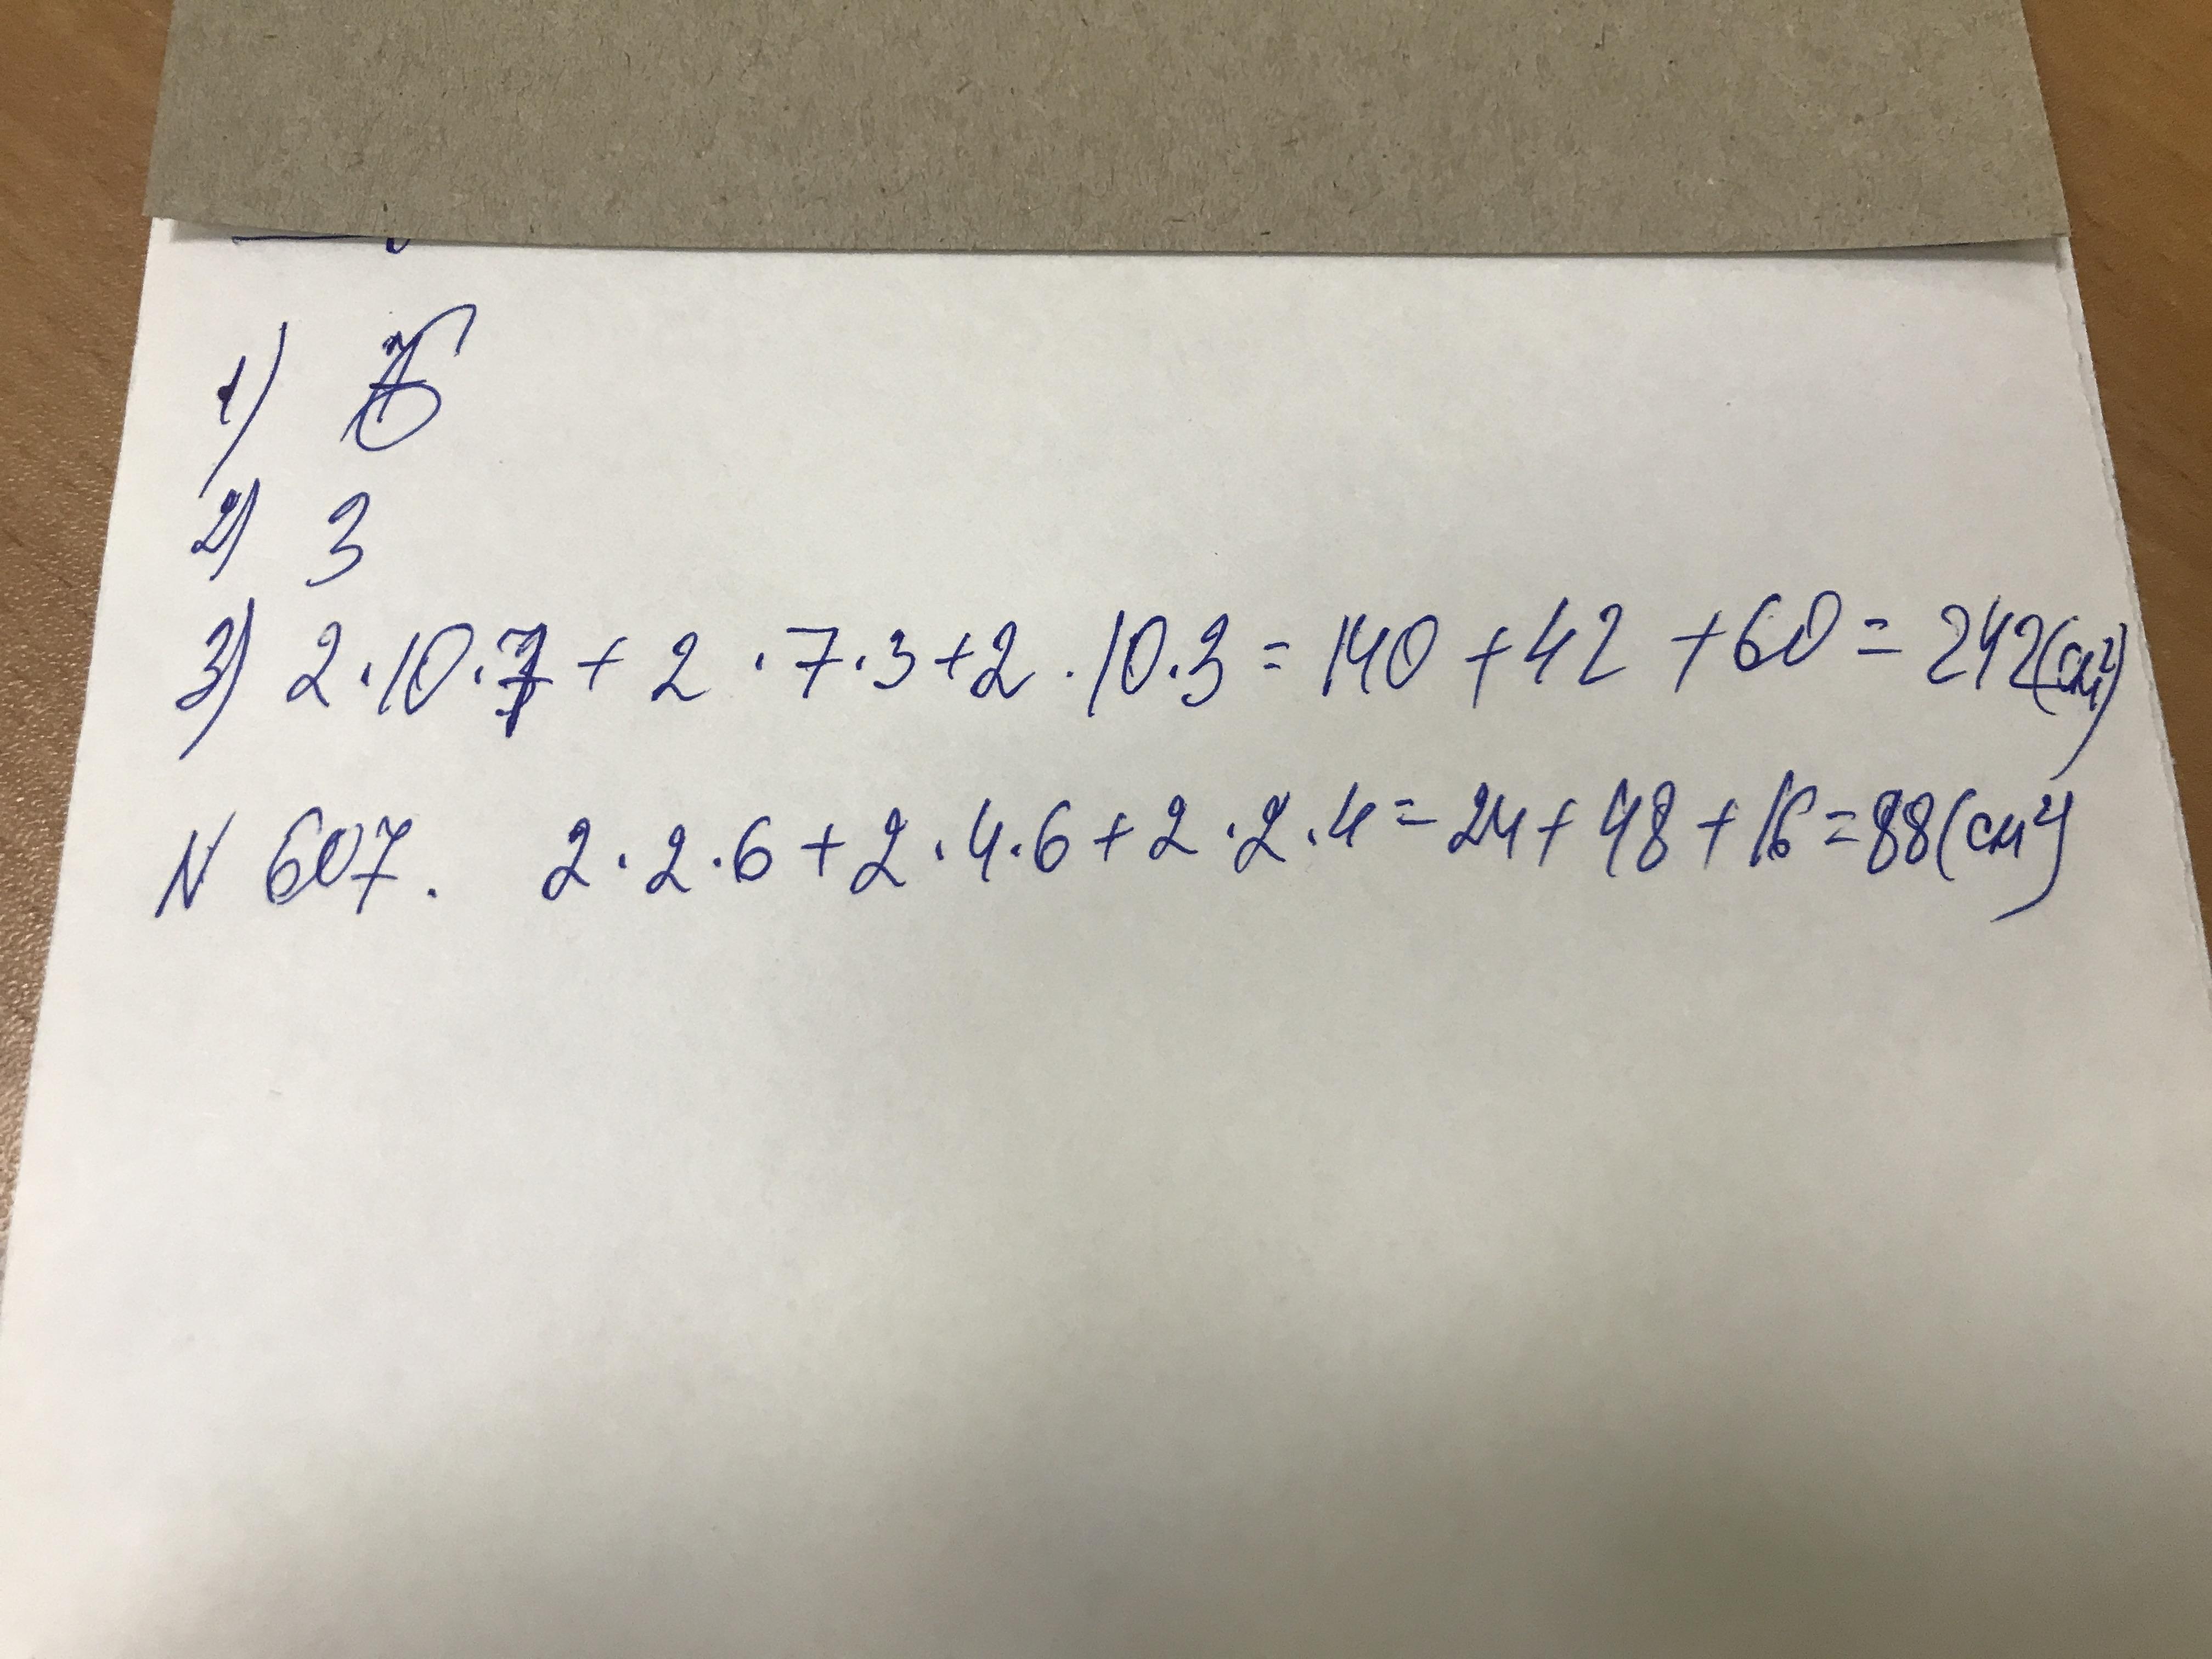 1) Б
2) 3
3) 2·10·7 + 2·7·3+2·10·3 = 140 + 42 + 60 = 242(см²)
N 607. 2·2·6+2·4·6+2·2·4=24+48+16=88(см²)